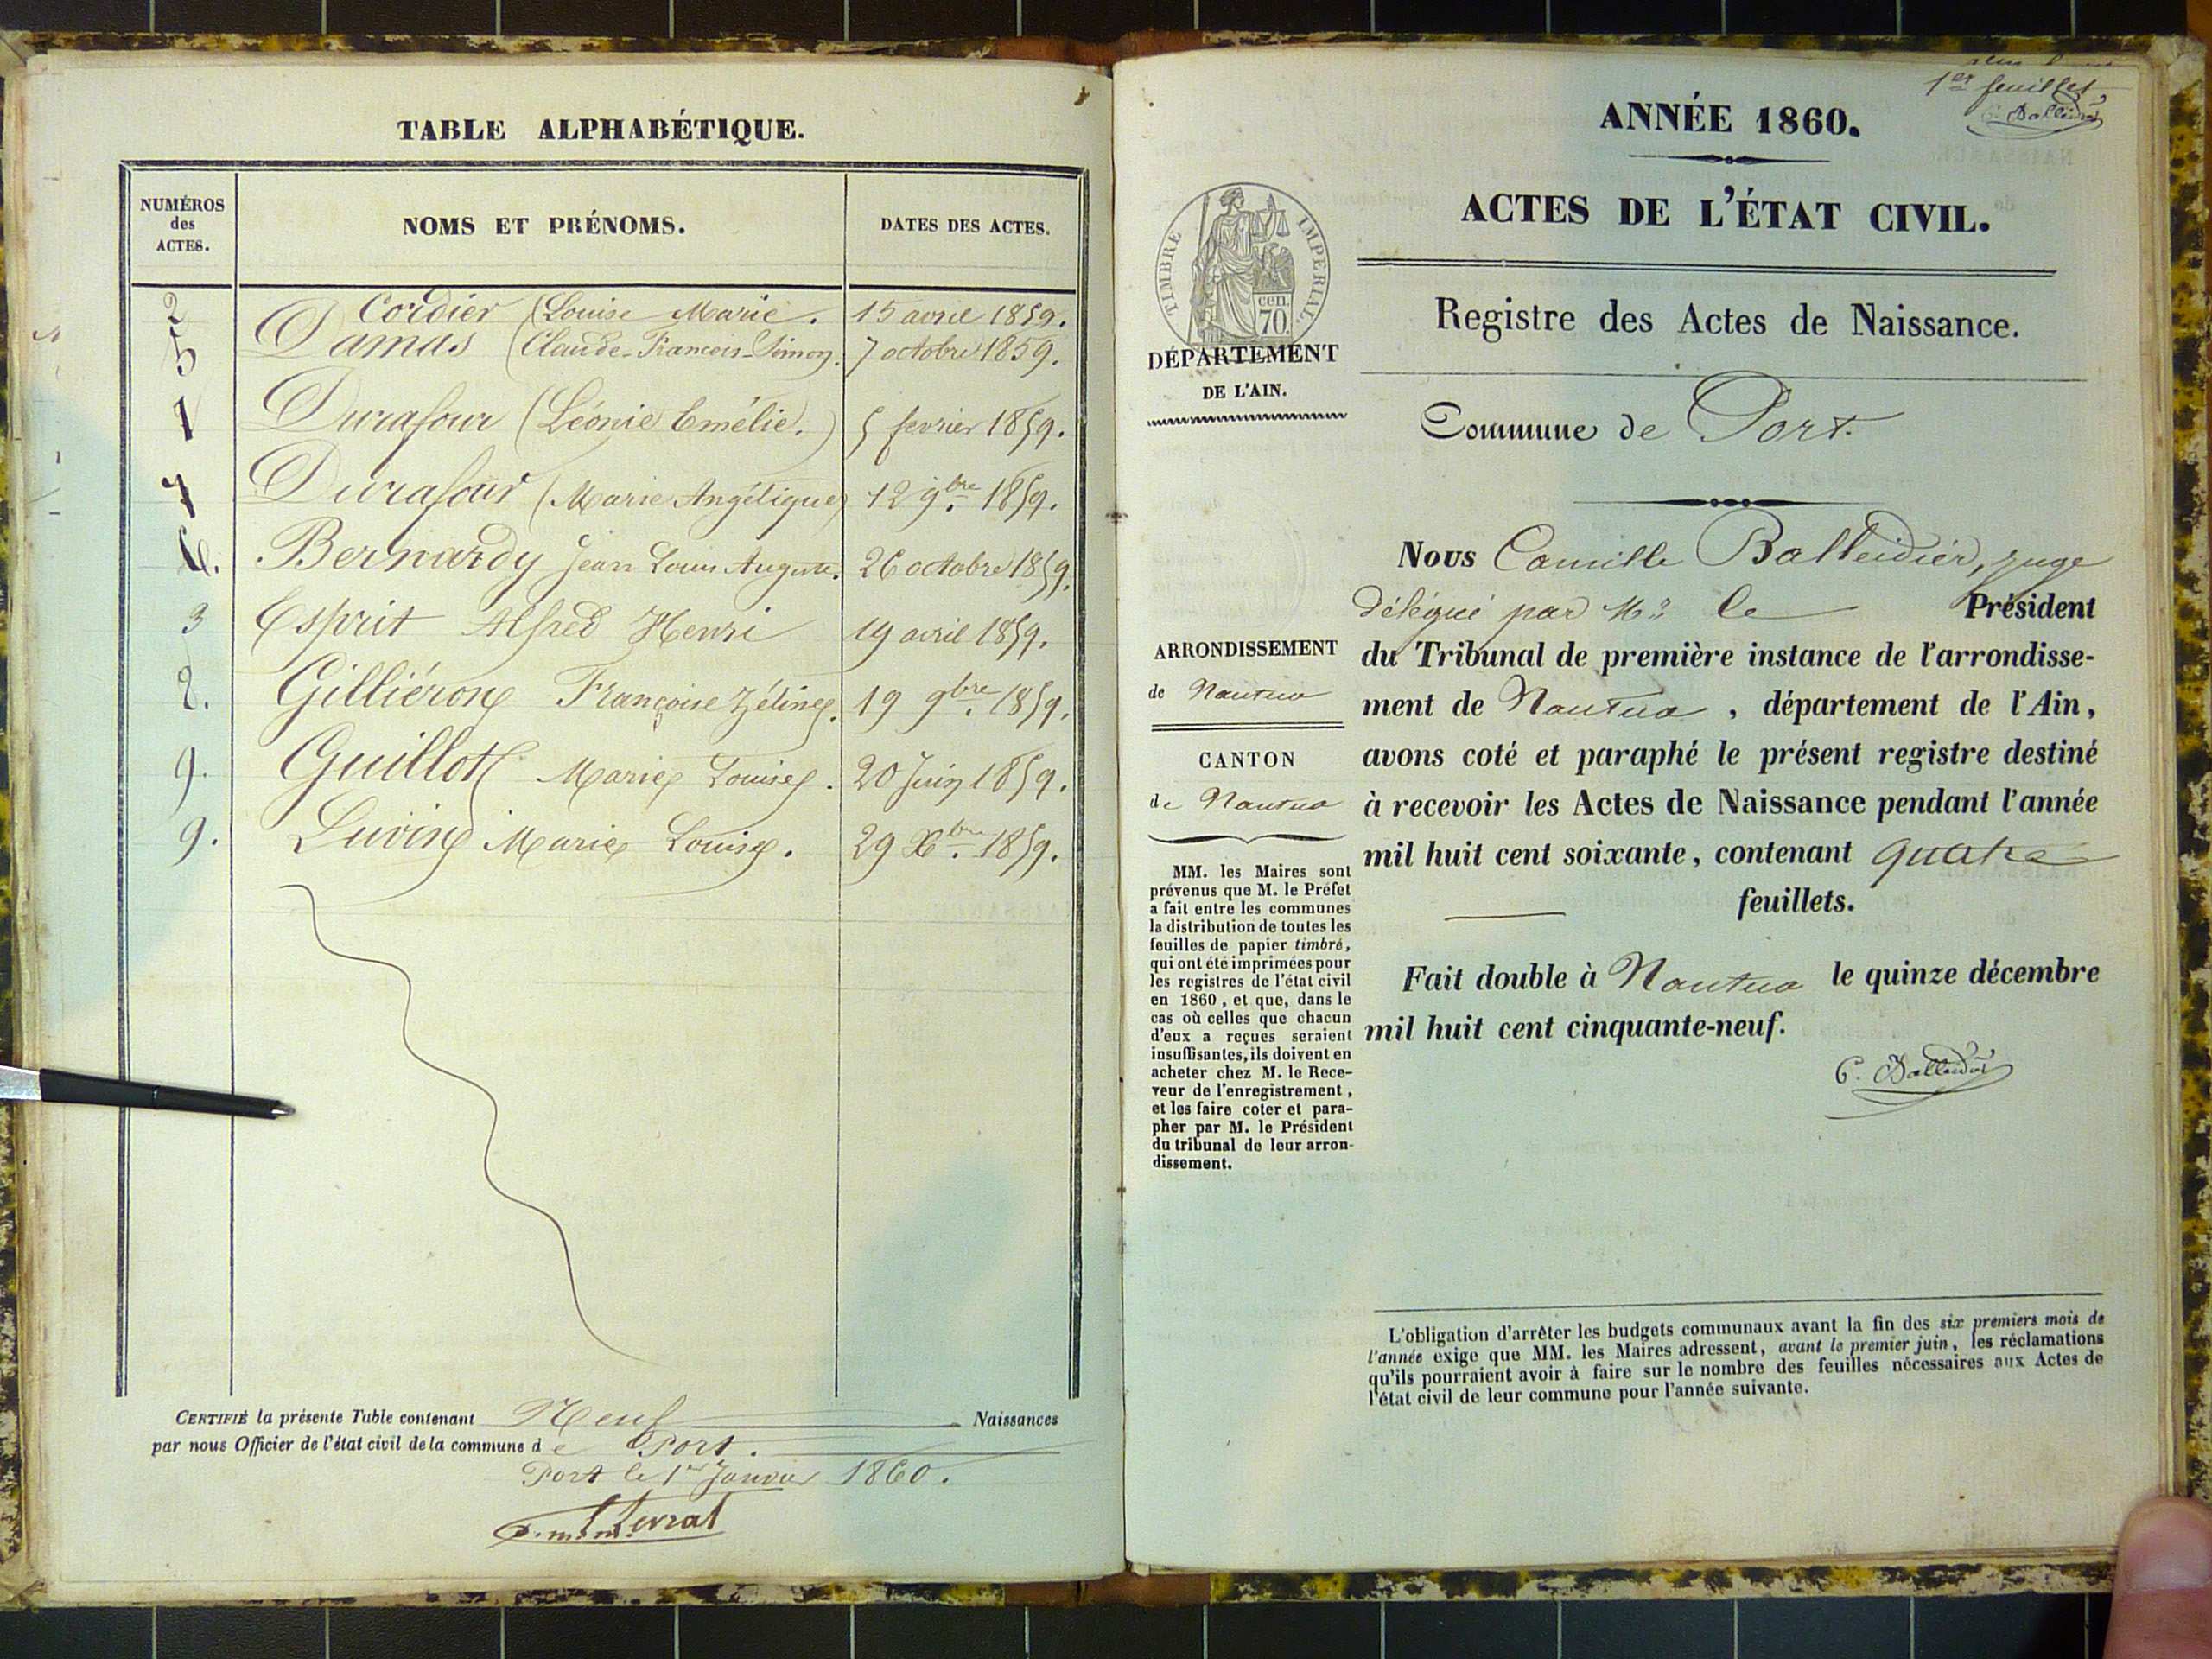 TABLE ALPHABÉTIQUE.
NUMÉROS des ACTES. NOMS ET PRÉNOMS. DATES DES ACTES.
2 Cordier (Louise Marie. 15 avril 1859.
5 Damas (Claude-Francois-Simon. 7 octobre 1859.
1 Durafour (Léonie Emélie.) 5 fevrier 1859.
7 Durafour (Marie Angélique) 12 9bre. 1859.
6. Bernardy Jean Louis Auguste. 26 octobre 1859.
3 Esprit Alfred Henri 19 avril 1859.
8. Gilliéron Françoise Zéline. 19 9bre. 1859.
9. Guillot Marie Louise. 20 Juin 1859.
9. Luvin Marie Louise. 29 Xbre. 1859.
CERTIFIÉ la présente Table contenant Neuf Naissances
par nous Officier de l'état civil de la commune de Port.
Port le 1er Janvier 1860.
1er feuillet
C. Balleidier
ANNÉE 1860.
ACTES DE L'ÉTAT CIVIL.
Registre des Actes de Naissance.
TIMBRE IMPERIAL
70 cen.
DÉPARTEMENT
DE L'AIN.
Commune de Port.
Nous Camille Balleidier, juge
délégué par Mr le Président
du Tribunal de première instance de l'arrondisse-
ment de Nantua, département de l'Ain,
avons coté et paraphé le présent registre destiné
à recevoir les Actes de Naissance pendant l'année
mil huit cent soixante, contenant quatre
feuillets.
Fait double à Nantua le quinze décembre
mil huit cent cinquante-neuf.
C. Balleidier
ARRONDISSEMENT
de Nantua
CANTON
de Nantua
MM. les Maires sont
prévenus que M. le Préfet
a fait entre les communes
la distribution de toutes les
feuilles de papier timbré,
qui ont été imprimées pour
les registres de l'état civil
en 1860, et que, dans le
cas où celles que chacun
d'eux a reçues seraient
insuffisantes, ils doivent en
acheter chez M. le Rece-
veur de l'enregistrement,
et les faire coter et para-
pher par M. le Président
du tribunal de leur arron-
dissement.
L'obligation d'arrêter les budgets communaux avant la fin des six premiers mois de
l'année exige que MM. les Maires adressent, avant le premier juin, les réclamations
qu'ils pourraient avoir à faire sur le nombre des feuilles nécessaires aux Actes de
l'état civil de leur commune pour l'année suivante.